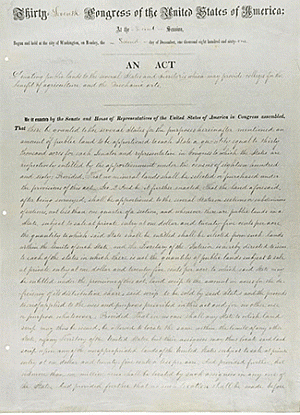 Thirty-Seventh Congress of the United States of America:
At the Second Session,
Begun and held at the city of Washington, on Monday, the Second day of December, one thousand eight hundred and sixty-one.
AN ACT
Donating public lands to the several States and Territories which may provide colleges for the
benefit of agriculture and the Mechanic arts.
Be it enacted by the Senate and House of Representatives of the United States of America in Congress assembled,
That there be granted to the several States, for the purposes hereinafter mentioned, an
amount of public land, to be apportioned to each State a quantity equal to thirty
thousand acres for each Senator and representative in Congress to which the States are
respectively entitled by the apportionment under the census of eighteen hundred
and sixty: Provided, That no mineral lands shall be selected or purchased under
the provisions of this act. Sec. 2. And be it further enacted, That the land aforesaid,
after being surveyed, shall be apportioned to the several States in sections or subdivisions
of sections, not less than one quarter of a section; and whenever there are public lands in a
State subject to sale at private entry at one dollar and twenty-five cents per acre,
the quantity to which said State shall be entitled shall be selected from such lands
within the limits of such State, and the Secretary of the Interior is hereby directed to issue
to each of the States in which there is not the quantity of public lands subject to sale
at private entry at one dollar and twenty-five cents per acre, to which said State may
be entitled under the provisions of this act, land scrip to the amount in acres for the de-
ficiency of its distributive share: said scrip to be sold by said States and the proceeds
thereof applied to the uses and purposes prescribed in this act, and for no other use
or purpose whatsoever: Provided, That in no case shall any State to which land
scrip may thus be issued be allowed to locate the same within the limits of any other
State, or of any Territory of the United States, but their assignees may thus locate said land
scrip upon any of the unappropriated lands of the United States subject to sale at private
entry at one dollar and twenty-five cents, or less, per acre: And provided, further, That
not more than one million acres shall be located by such assignees in any one of
the States: And provided, further, That no such location shall be made before